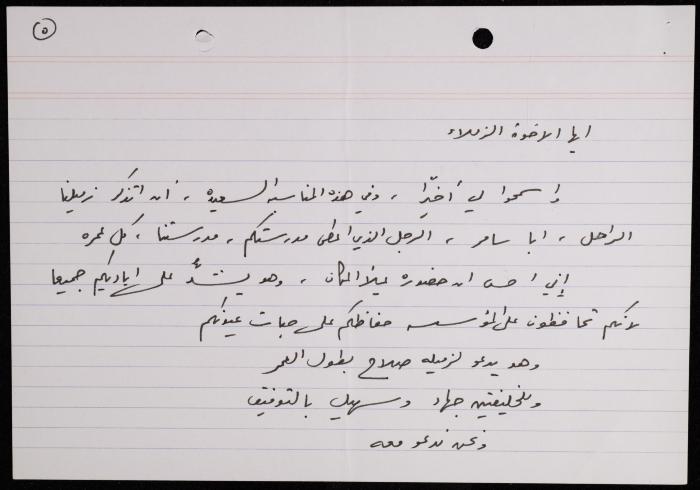 ٥
ايها الاخوة الزملاء
واسمحوا لي أخيّرا ، وفي هذه المناسبة السعيدة ، أن اتذكر زميلنا
الراحل ، ابا سامر ، الرجل الذي اعطى مدرستكم ، مدرستنا ، كل عمره
إني احس ان حضوره يملأ المكان ، وهو يشدُّ على اياديكم جميعا
لانكم تحافظون على المؤسسه حفاظكم على حبات عيونكم
وهو يدعو لزميله صلاح بطول العمر
وللخليفتين جهاد وسهيل بالتوفيق
ونحن ندعو معه